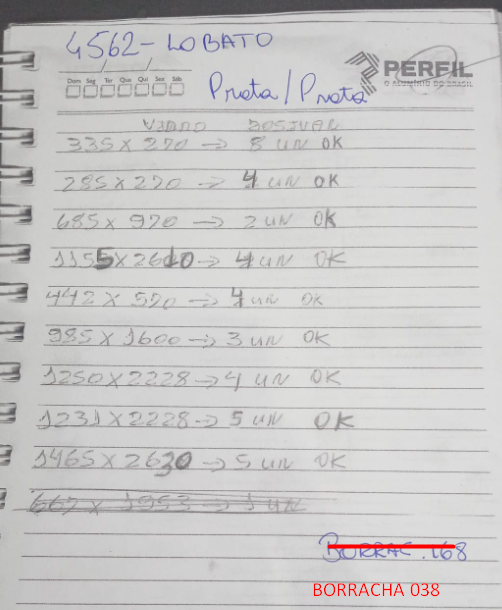 4562-LOBATO
Dom Seg Ter Qua Qui Sex Sáb
PERFIL
O ALUMÍNIO DO BRASIL
Prata/Prata
VIDRO
335 x 270 → 8 UN OK
285 x 270 → 4 UN OK
685 x 970 → 2 UN OK
1155 x 2610 → 4 UN OK
442 x 570 → 4 UN OK
985 x 1600 → 3 UN OK
1250 x 2228 → 4 UN OK
1231 x 2228 → 5 UN OK
1465 x 2630 → 5 UN OK
667 x 1953 → 1 UN
BORRAC. 168
BORRACHA 038